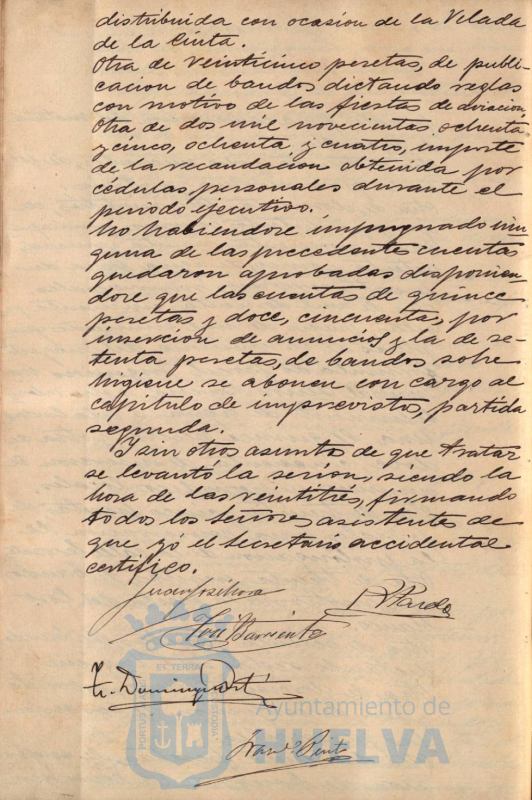 distribuida con ocasion de la Velada
de la Cinta.
Otra de veinticinco pesetas, de publi-
cacion de bandos dictando reglas
con motivo de las fiestas de aviacion.
Otra de dos mil novecientas ochenta
y cinco, ochenta y cuatro, importe
de la recaudacion obtenida por
cédulas personales durante el
periodo ejecutivo.
No habiendose impugnado nin-
guna de las precedentes cuentas
quedaron aprobadas disponien-
dose que las cuentas de quince
pesetas y doce, cincuenta, por
insercion de anuncios y la de se-
tenta pesetas, de bandos sobre
higiene se abonen con cargo al
capitulo de imprevistos, partida
segunda.
Y sin otros asuntos de que tratar
se levantó la sesion, siendo la
hora de las veintitrés, firmando
todos los Señores asistentes de
que yó el Secretario accidental
certifico.
Barrientos
EL TERRA
PORTUS
CUSTODIA
Ayuntamiento de
HUELVA